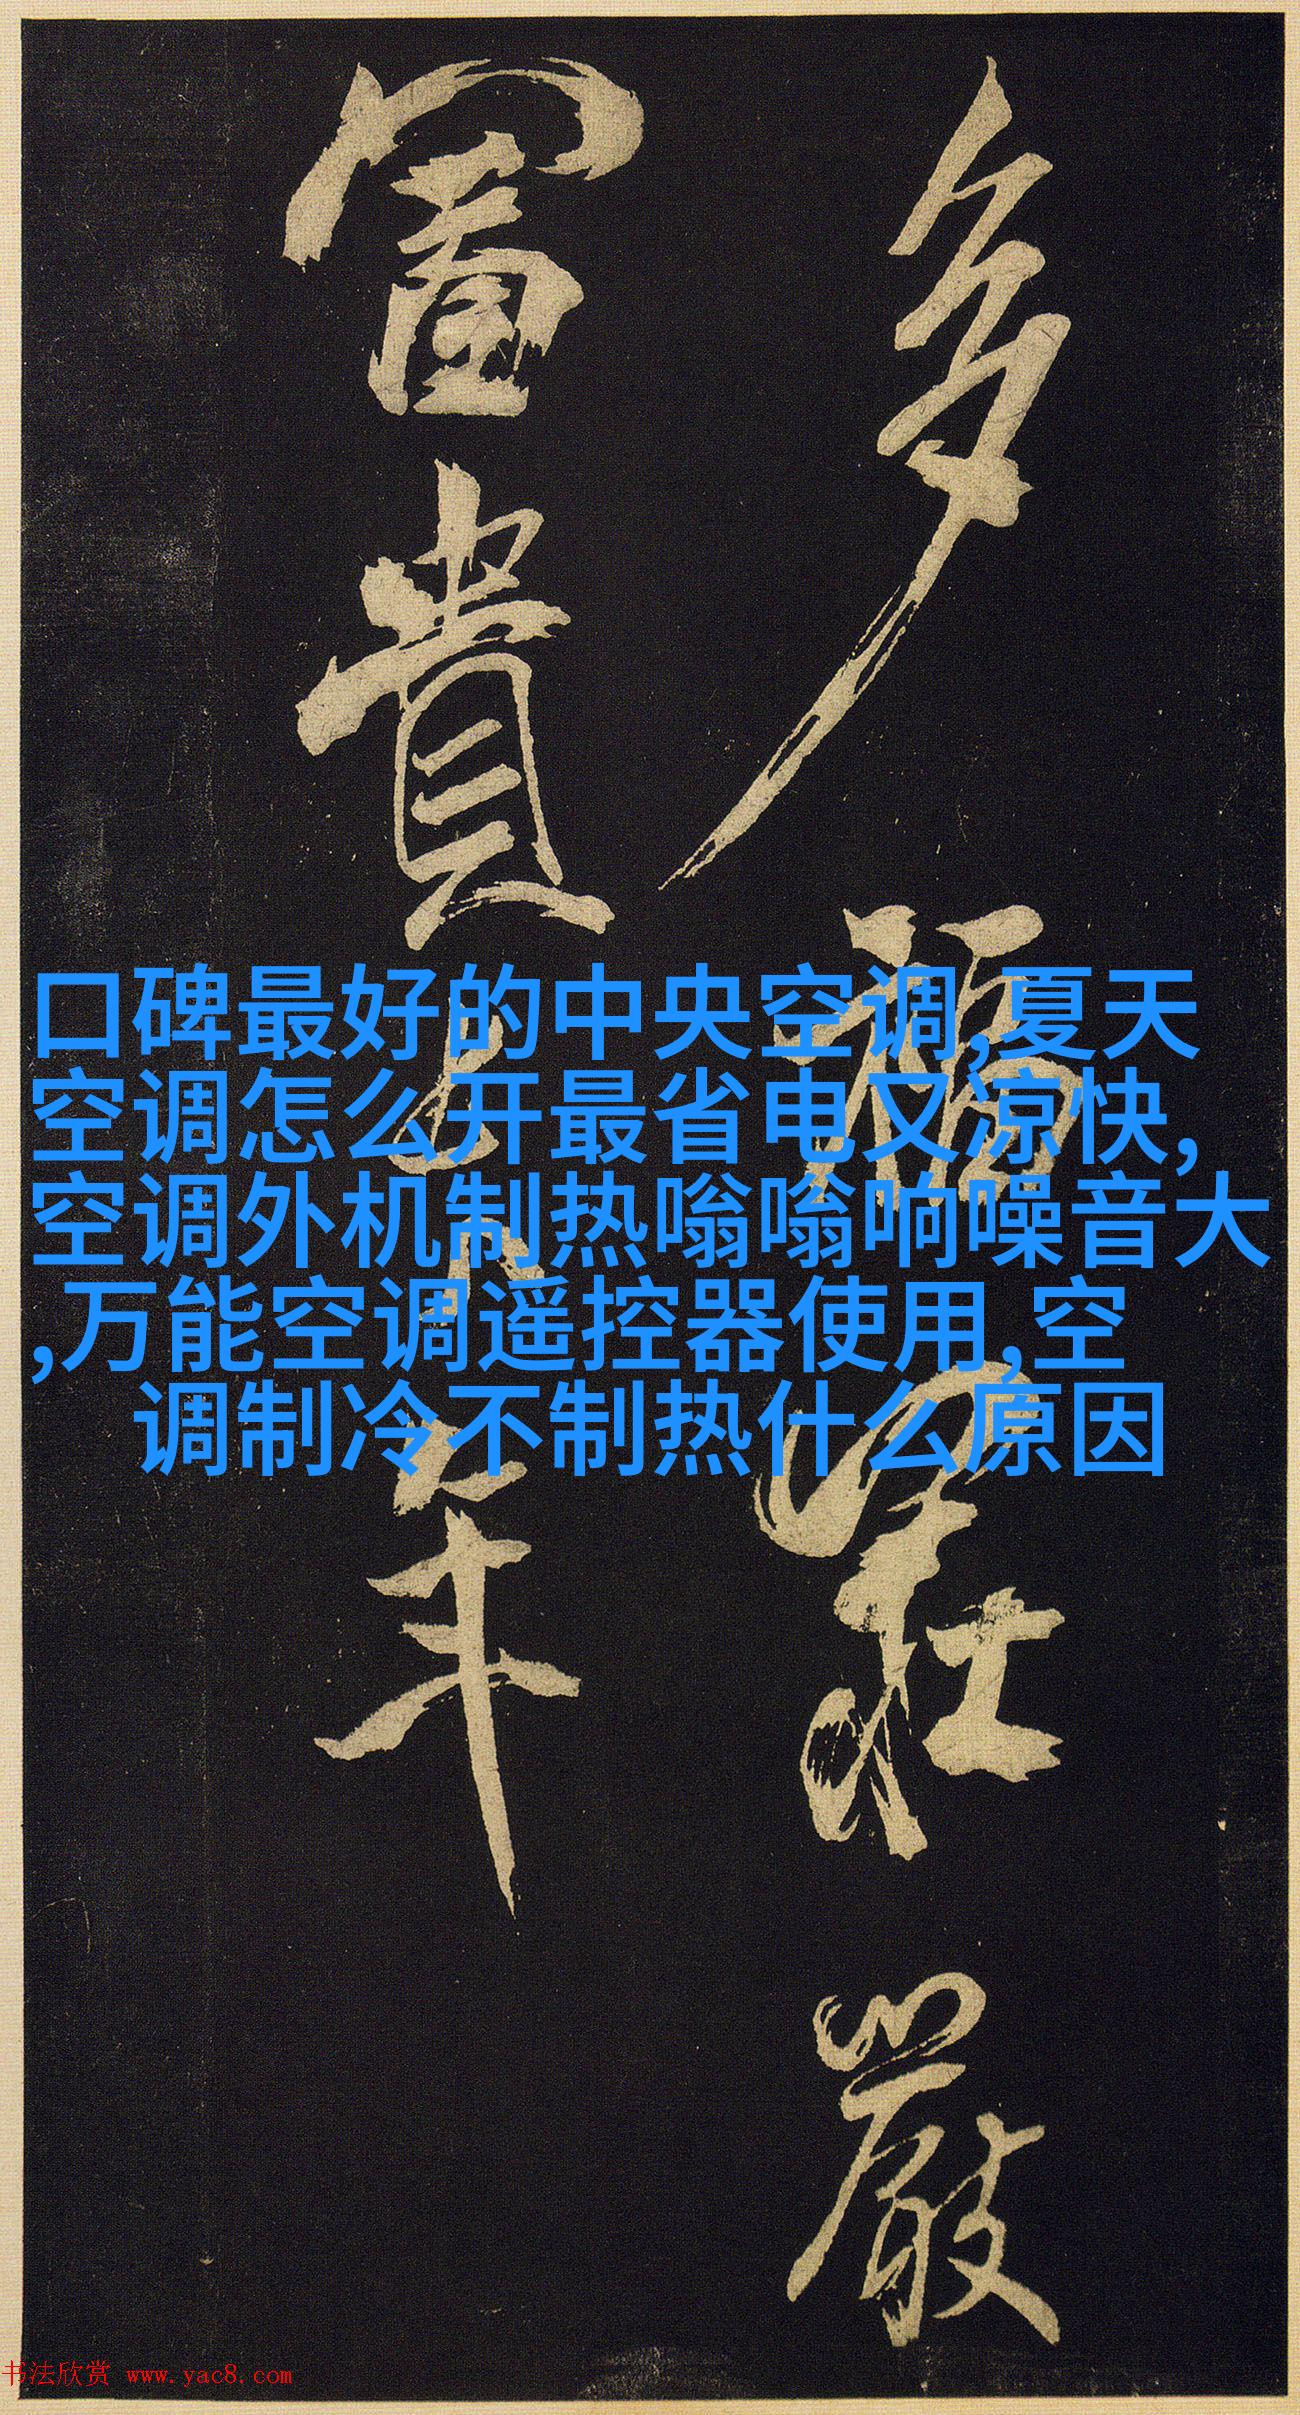 多福莊嚴
富貴
年
口碑最好的中央空调,夏天
空调怎么开最省电又凉快,
空调外机制热嗡嗡响噪音大
,万能空调遥控器使用,空
调制冷不制热什么原因
书法欣赏 www.yac8.com